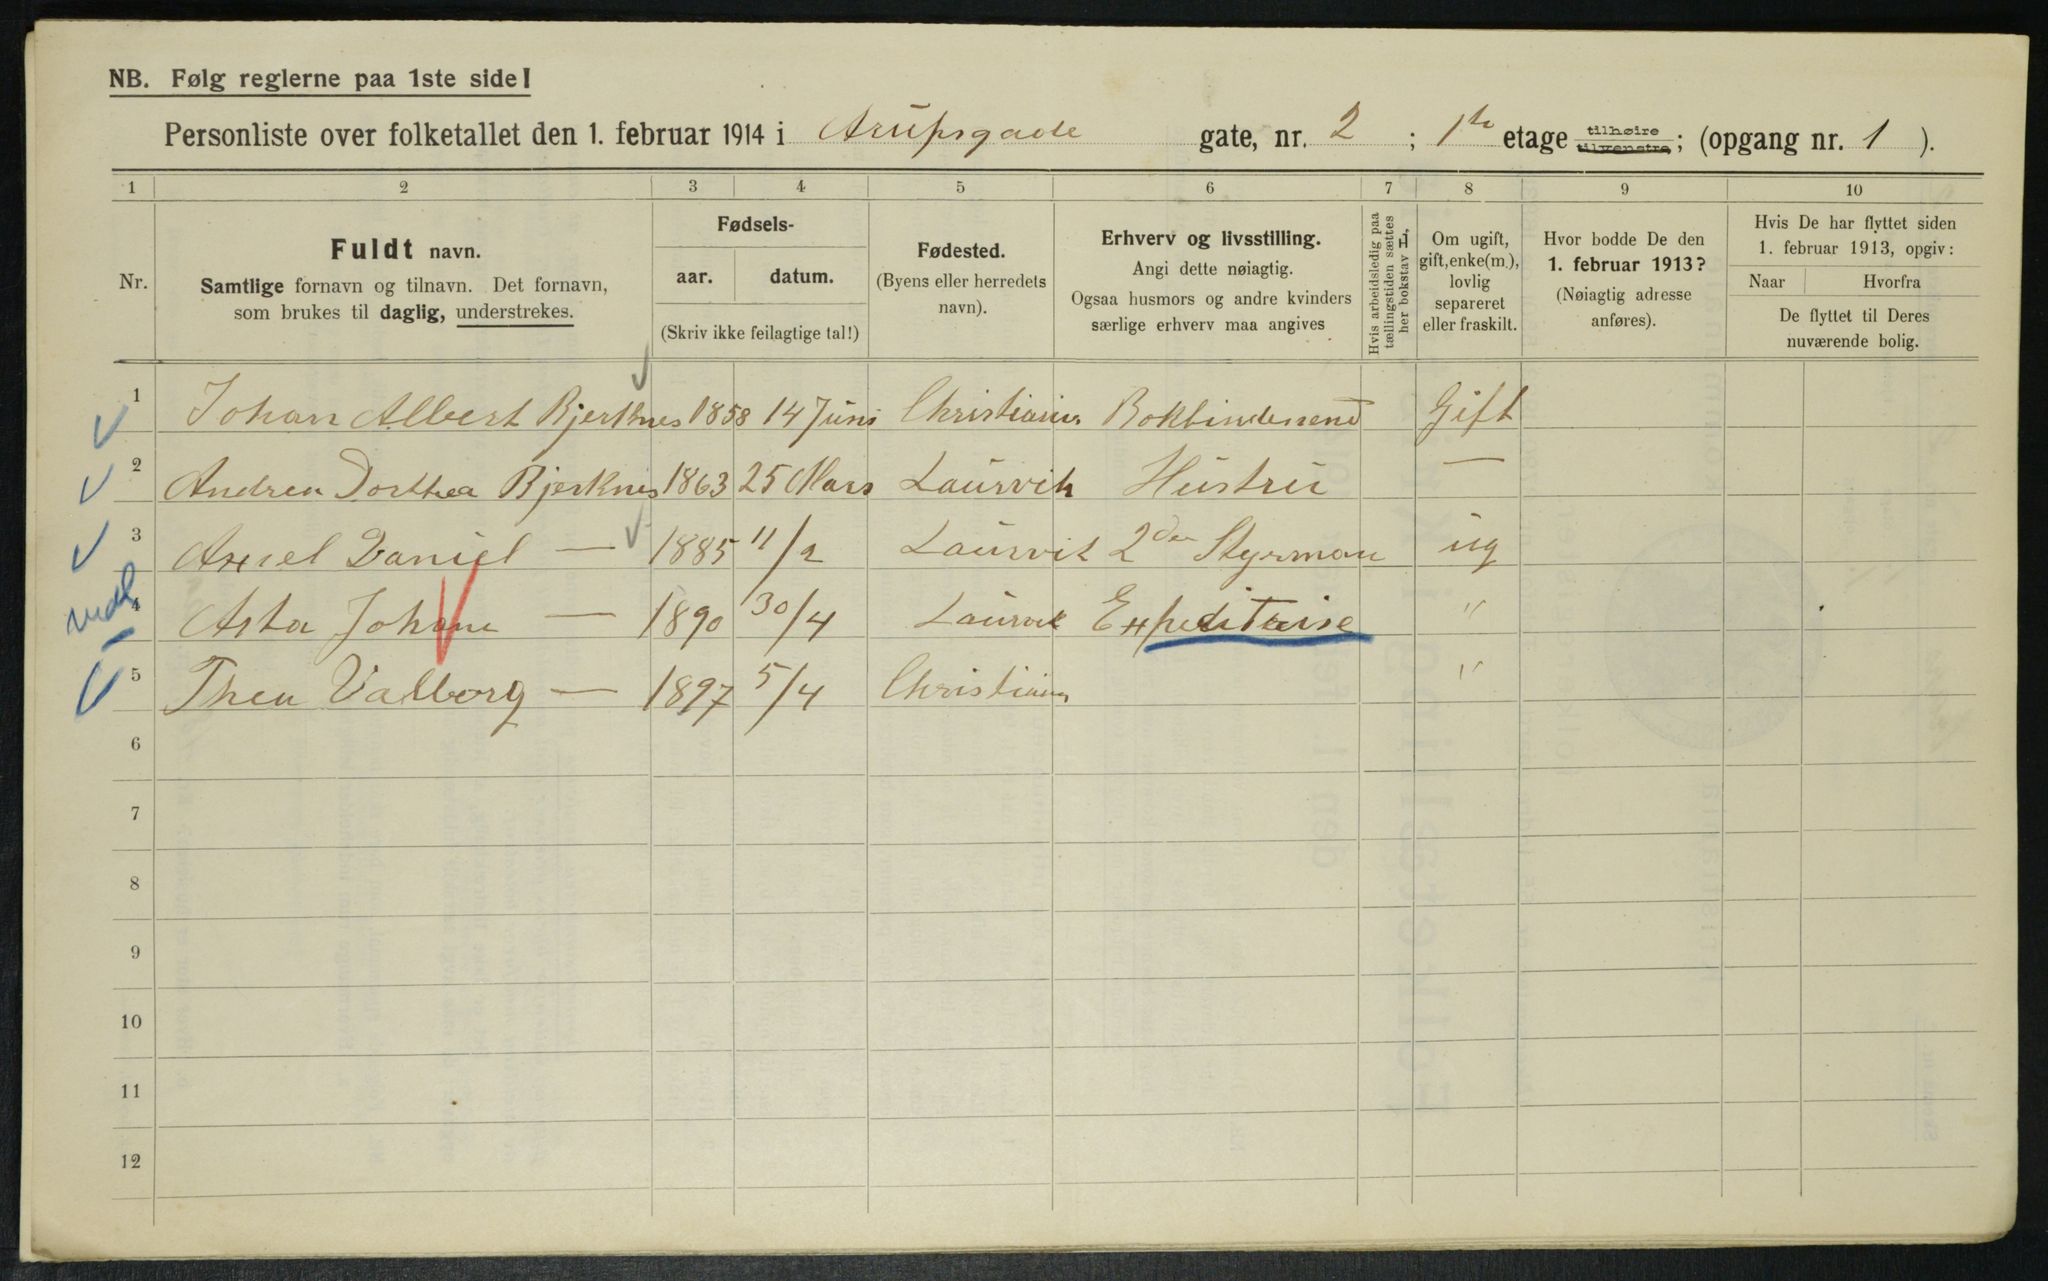 NB. Følg reglerne paa 1ste side!
Personliste over folketallet den 1. februar 1914 i Arupsgade gate, nr. 2 ; 1ste etage tilhøire tilvenstre; (opgang nr. 1 ).
1 2 3 4 5 6 7 8 9 10
Nr.
Fuldt navn.
Samtlige fornavn og tilnavn. Det fornavn,
som brukes til daglig, understrekes.
Fødsels-
aar. datum.
(Skriv ikke feilagtige tal!)
Fødested.
(Byens eller herredets
navn).
Erhverv og livsstilling.
Angi dette nøiagtig.
Ogsaa husmors og andre kvinders
særlige erhverv maa angives
Hvis arbeidsledig paa
tællingstiden sættes
her bokstav L,
Om ugift,
gift, enke(m.),
lovlig
separeret
eller fraskilt.
Hvor bodde De den
1. februar 1913?
(Nøiagtig adresse
anføres).
Hvis De har flyttet siden
1. februar 1913, opgiv:
Naar Hvorfra
De flyttet til Deres
nuværende bolig.
1 Johan Albert Bjerknes 1858 14 Juni Christiania Bokbindersend Gift
2 Andrea Dorthea Bjerknes 1863 25 Mars Laurvik Hustru —
3 Axel Daniel — 1885 11/2 Laurvik 2den Styrman ug
4 Asta Johane — 1890 30/4 Laurvik Expeditrise "
5 Thea Valborg — 1897 5/4 Christiania "
6
7
8
9
10
11
12